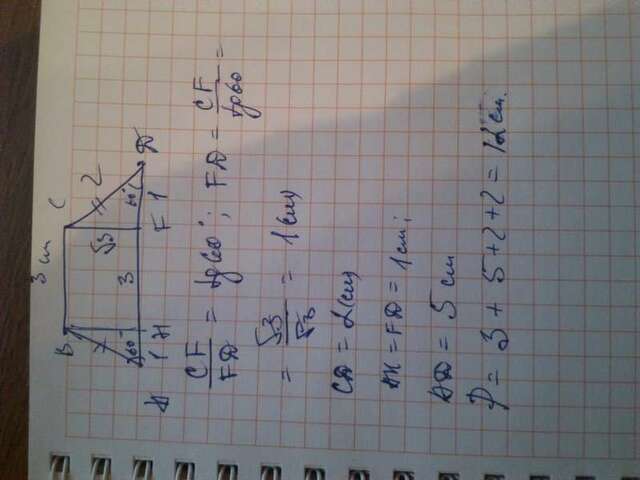 3 см
B C
√3 2
60° 3 60°
A 1 H F 1 D
CF/FD = tg60°; FD = CF/tg60 =
= √3/√3 = 1(см)
CD = 2(см)
AH = FD = 1см;
AD = 5 см
P = 3 + 5 + 2 + 2 = 12 см.